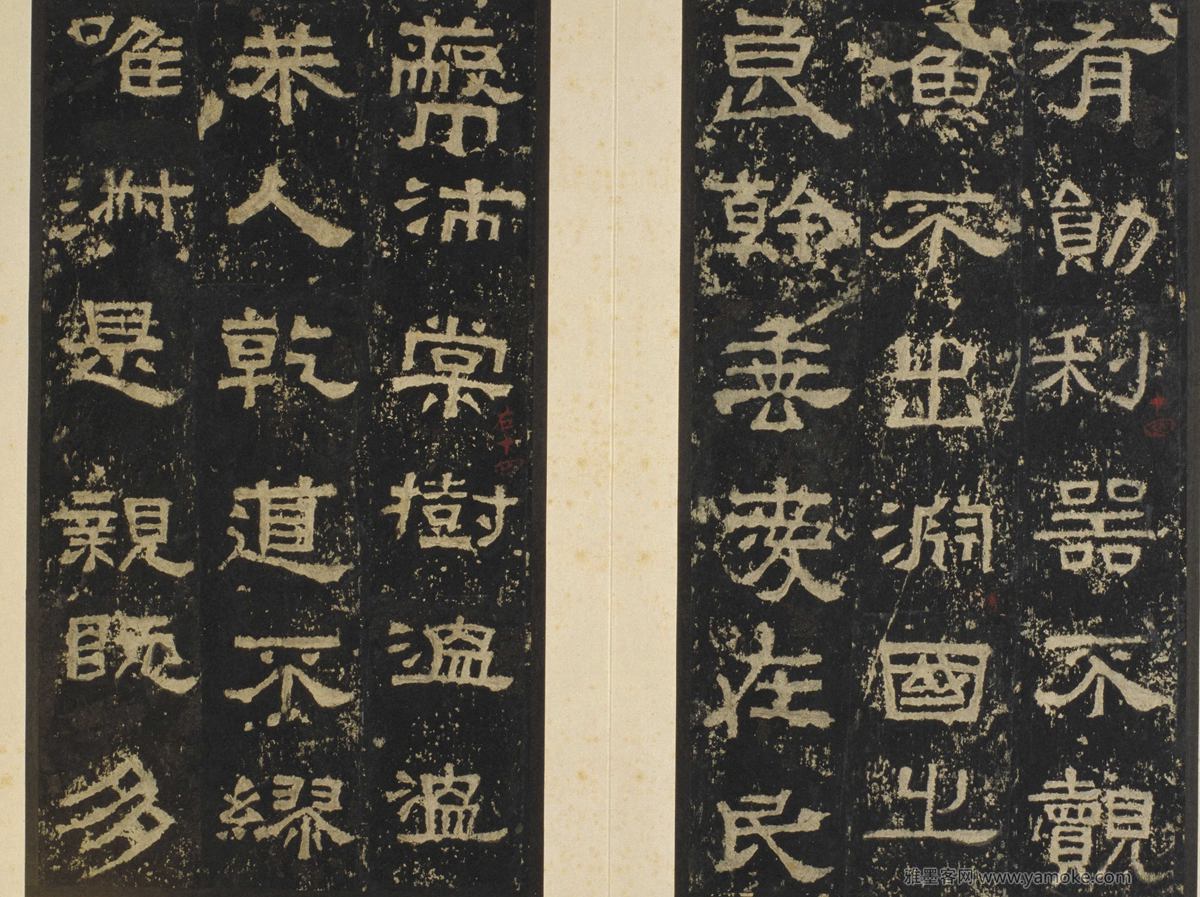 有勛利器不覿
魚不出淵國之
良幹垂愛在民
蔽沛棠樹溫溫
恭人乾道不繆
唯淑是親既多
十四
右十四
雅墨客网 www.yamoke.com